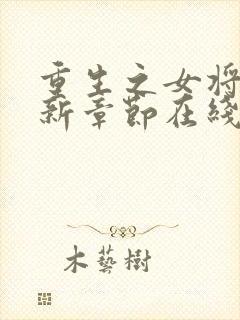 重生之女将
新章節在綫
木藝樹